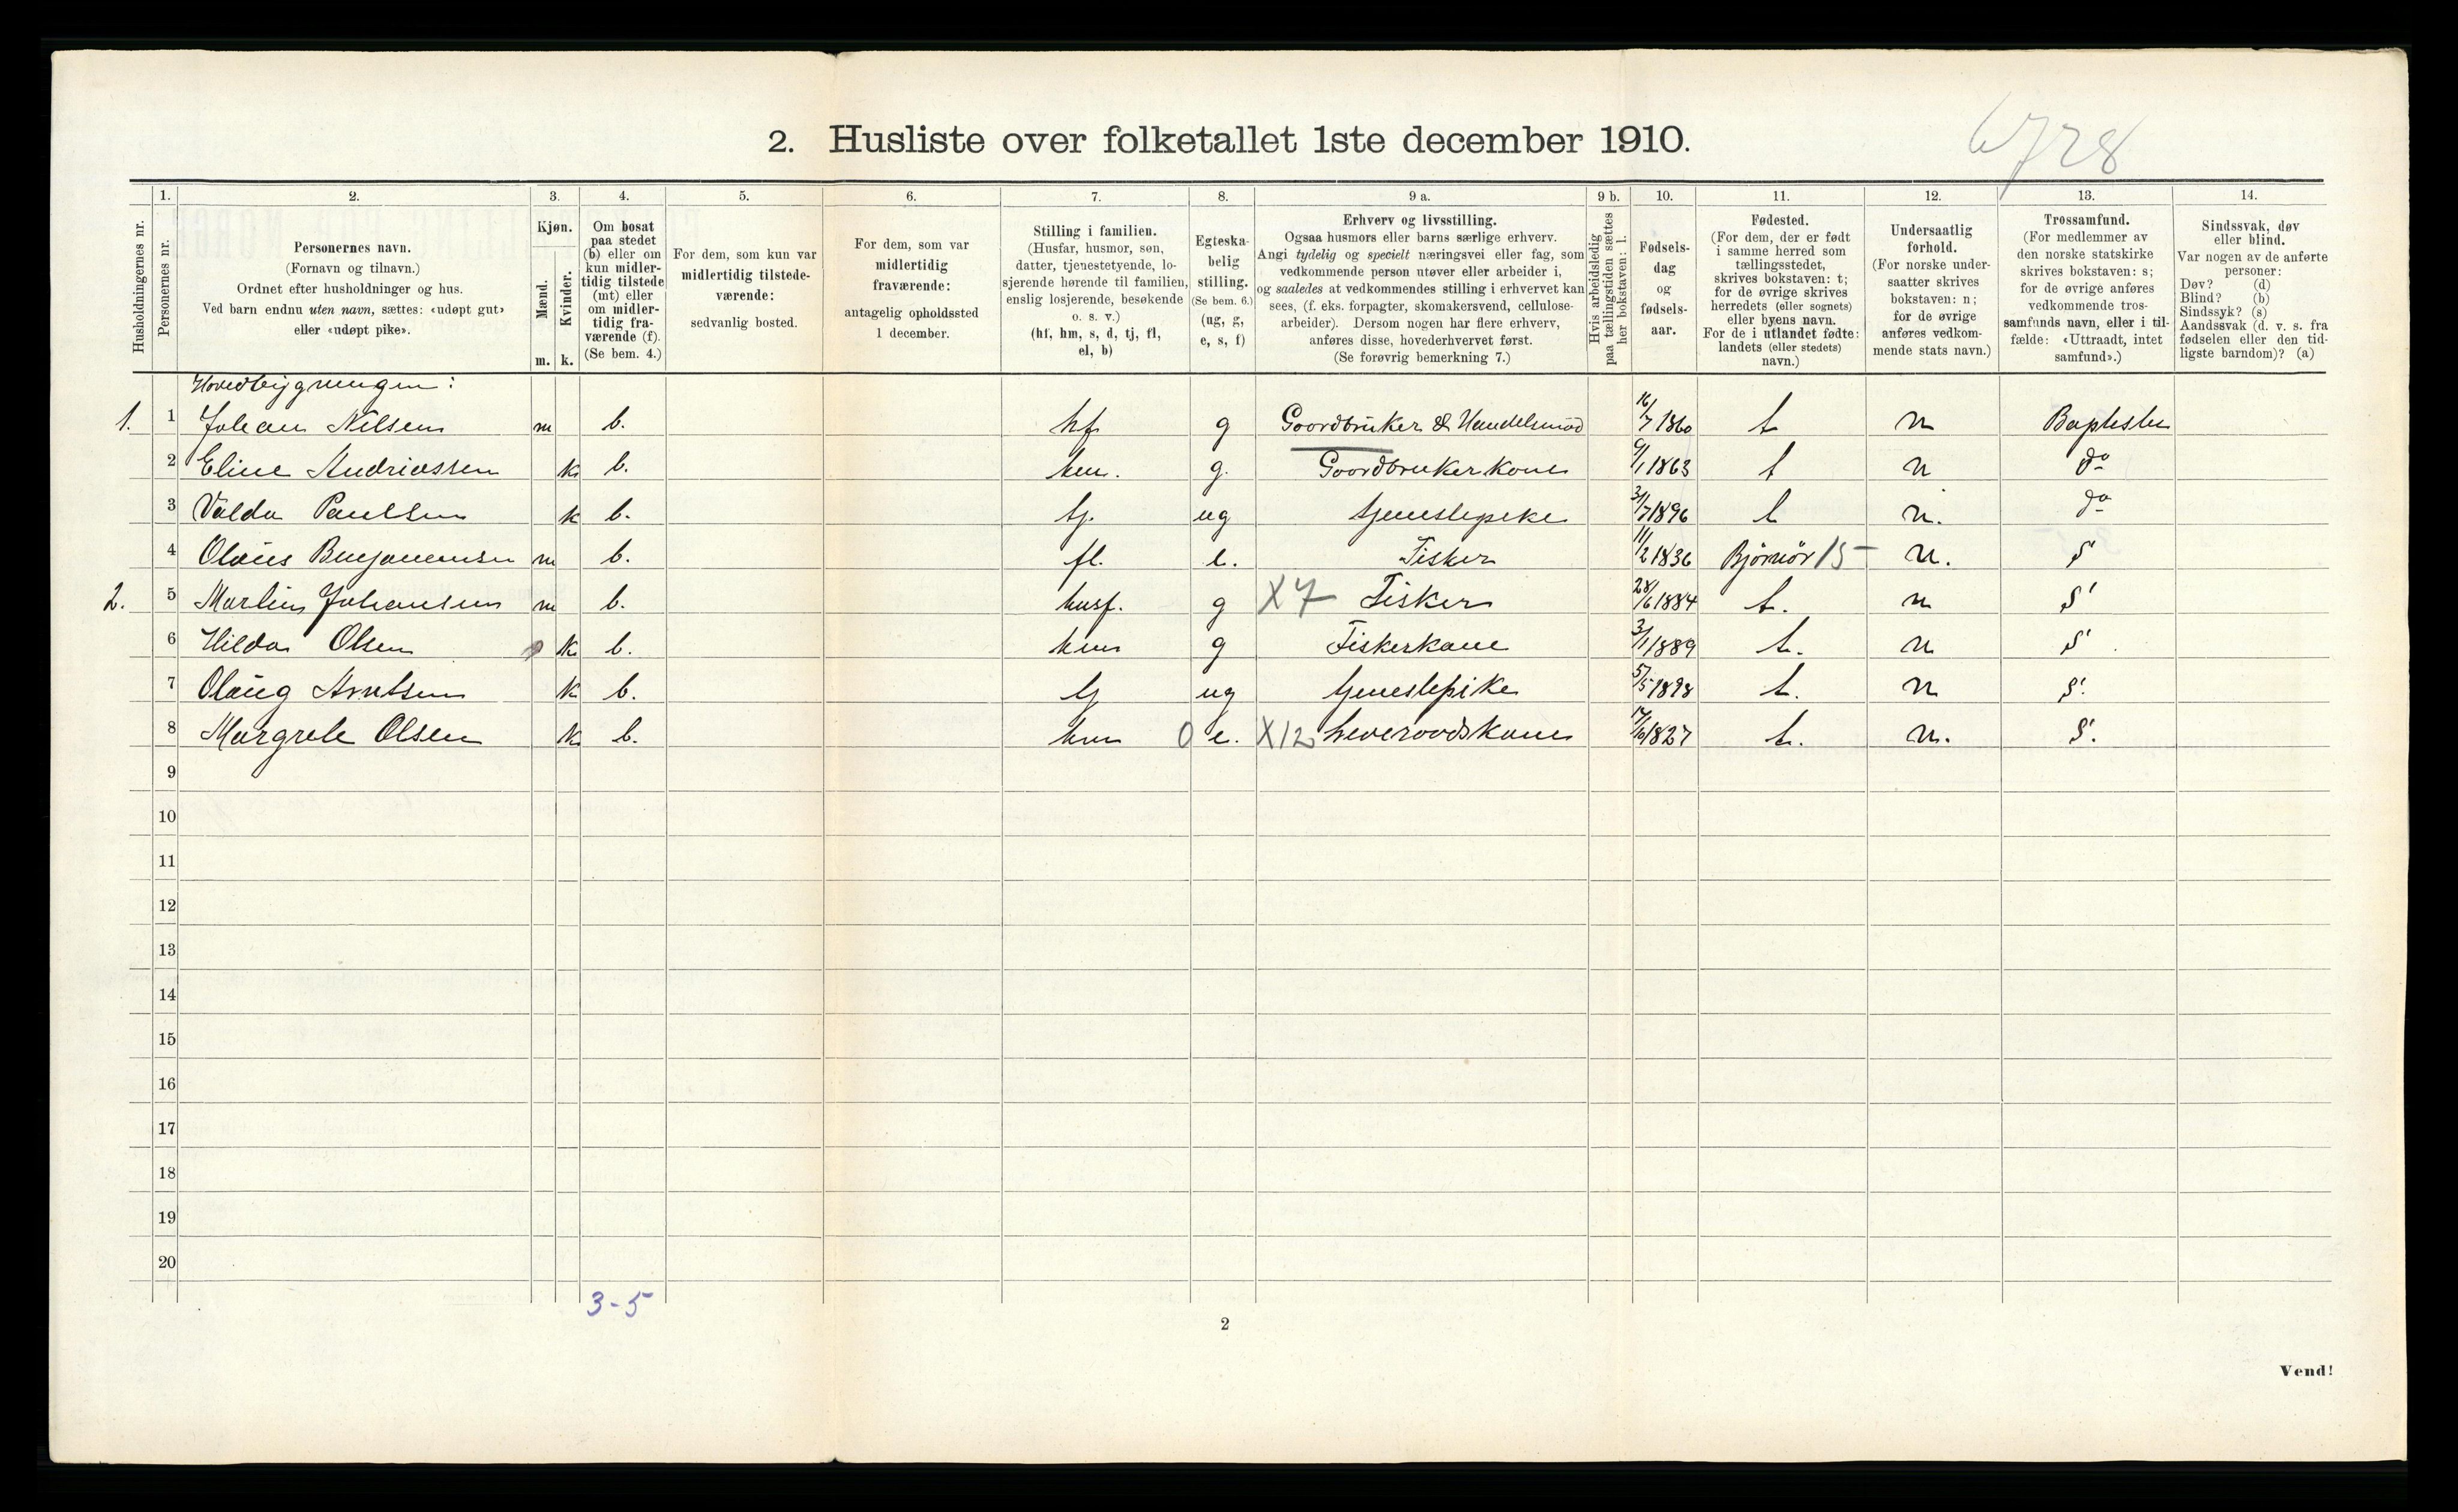 6728
2. Husliste over folketallet 1ste december 1910.
1. 2. 3. 4. 5. 6. 7. 8. 9 a. 9 b. 10. 11. 12. 13. 14.
Husholdningernes nr.
Personernes nr.
Personernes navn.
(Fornavn og tilnavn.)
Ordnet efter husholdninger og hus.
Ved barn endnu uten navn, sættes: «udøpt gut»
eller «udøpt pike».
Kjøn.
Mænd.
Kvinder.
m. k.
Om bosat
paa stedet
(b) eller om
kun midler-
tidig tilstede
(mt) eller
om midler-
tidig fra-
værende (f).
(Se bem. 4.)
For dem, som kun var
midlertidig tilstede-
værende:
sedvanlig bosted.
For dem, som var
midlertidig
fraværende:
antagelig opholdssted
1 december.
Stilling i familien.
(Husfar, husmor, søn,
datter, tjenestetyende, lo-
sjerende hørende til familien,
enslig losjerende, besøkende
o. s. v.)
(hf, hm, s, d, tj, fl,
el, b)
Egteska-
belig
stilling.
(Se bem. 6.)
(ug, g,
e, s, f)
Erhverv og livsstilling.
Ogsaa husmors eller barns særlige erhverv.
Angi tydelig og specielt næringsvei eller fag, som
vedkommende person utøver eller arbeider i,
og saaledes at vedkommendes stilling i erhvervet kan
sees, (f. eks. forpagter, skomakersvend, cellulose-
arbeider). Dersom nogen har flere erhverv,
anføres disse, hovederhvervet først.
(Se forøvrig bemerkning 7.)
Hvis arbeidsledig
paa tællingstiden sættes
her bokstaven: l.
Fødsels-
dag
og
fødsels-
aar.
Fødested.
(For dem, der er født
i samme herred som
tællingsstedet,
skrives bokstaven: t;
for de øvrige skrives
herredets (eller sognets)
eller byens navn.
For de i utlandet fødte:
landets (eller stedets)
navn.)
Undersaatlig
forhold.
(For norske under-
saatter skrives
bokstaven: n;
for de øvrige
anføres vedkom-
mende stats navn.)
Trossamfund.
(For medlemmer av
den norske statskirke
skrives bokstaven: s;
for de øvrige anføres
vedkommende tros-
samfunds navn, eller i til-
fælde: «Uttraadt, intet
samfund».)
Sindssvak, døv
eller blind.
Var nogen av de anførte
personer:
Døv? (d)
Blind? (b)
Sindssyk? (s)
Aandssvak (d. v. s. fra
fødselen eller den tid-
ligste barndom)? (a)
Hovedbygningen:
1. 1 Johan Nilsen m b. hf g Goordbruker & Handelsmod 16/7 1860 t n Baptister
2 Eline Andriassen k b. hm. g. Goordbrukerkone 9/1 1863 t n do
3 Valda Paulsen k b. tj. ug tjenestepike 31/7 1896 t n. do
4 Olaus Benjamensen m b. fl. e. Fisker 11/2 1836 Bjørnör 15 n. S
2. 5 Martin Johansen m b. husf. g X7 Fisker 28/6 1884 t. n S
6 Hilda Olsen k b. hm g Fiskerkone 3/1 1889 t. n S
7 Olaug Arntsen k b. tj ug tjenestepike 5/5 1898 t. n S.
8 Margrete Olsen k b. hm 0 e. X12 Leveroodskone 17/10 1827 t. n. S.
9
10
11
12
13
14
15
16
17
18
19
20
3-5
2
Vend!